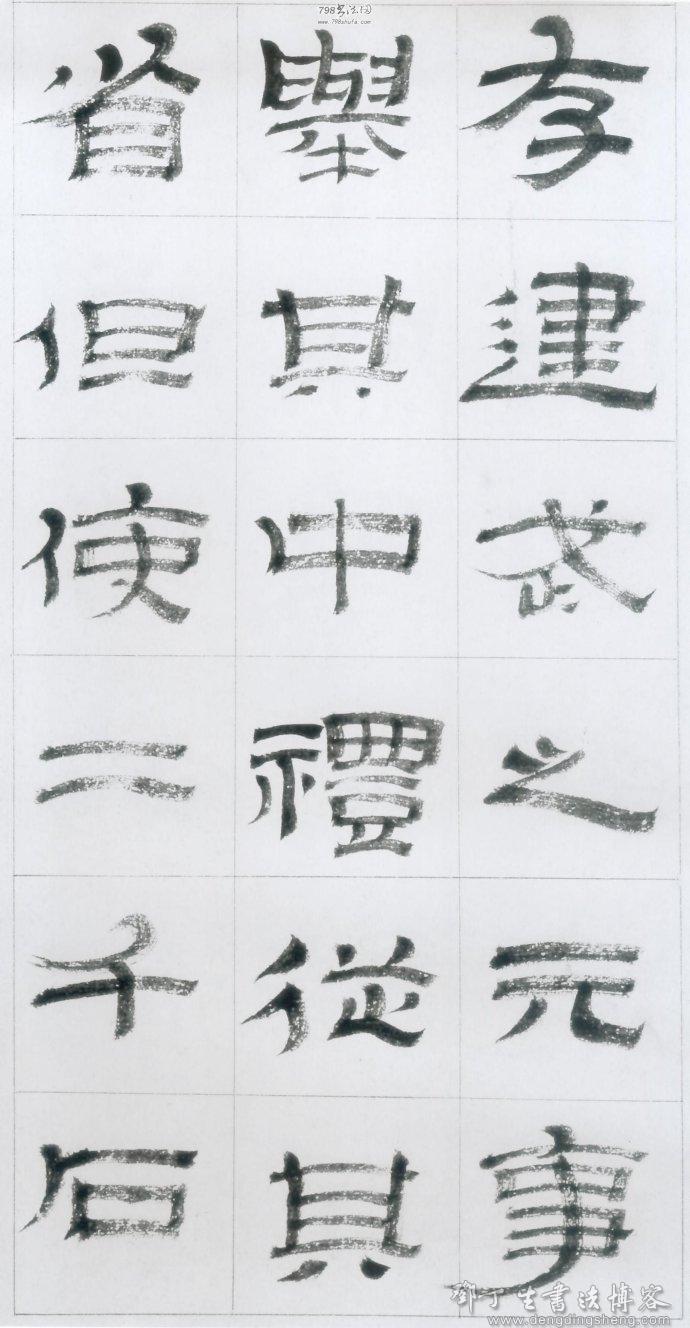 798书法网
www.798shufa.com
存建武之元事
舉其中禮從其
省但使二千石
鄧丁生書法博客
www.dengdingsheng.com